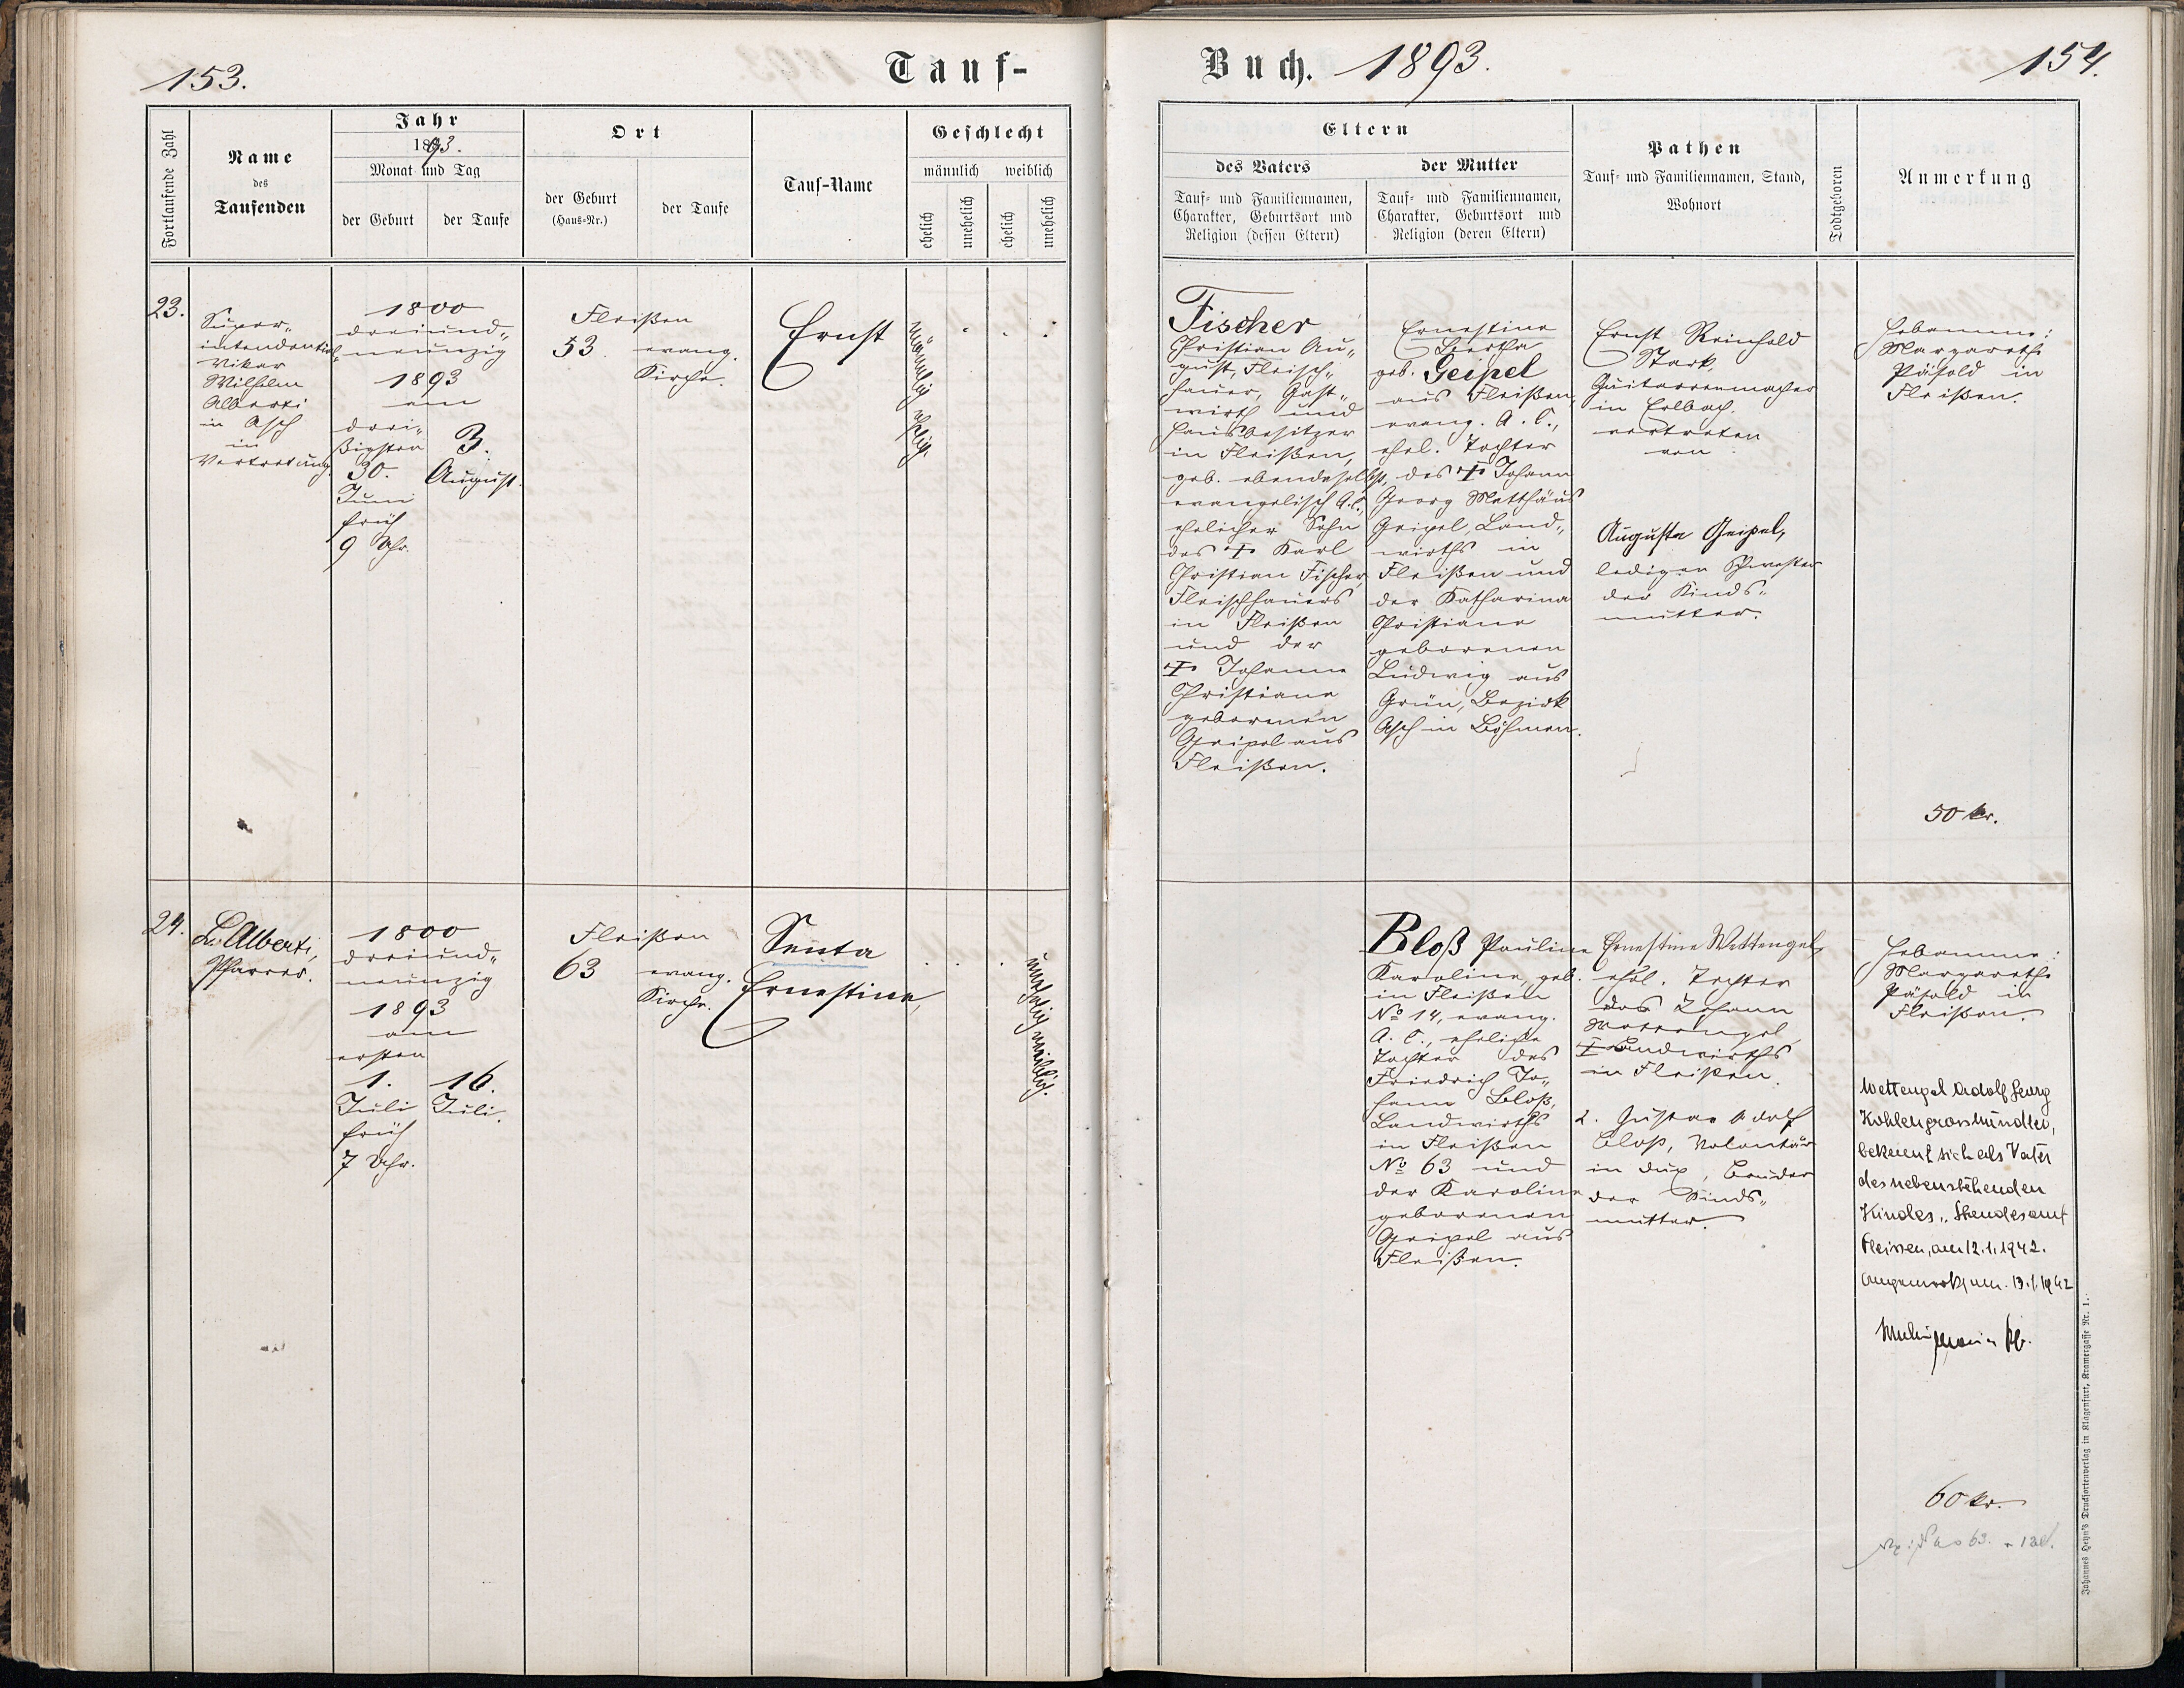 153.
Tauf-
Fortlaufende Zahl
Name
des
Taufenden
Jahr
1893.
Monat und Tag
der Geburt
der Taufe
Ort
der Geburt
(Haus-Nr.)
der Taufe
Tauf-Name
Geschlecht
männlich
weiblich
ehelich
unehelich
ehelich
unehelich
23.
Super-
intendential
Vikar
Wilhelm
Alberti
in Asch
in
Vertretung.
1800
dreiund-
neunzig
1893
am
drei-
ßigsten
30.
Juni
früh
9 Uhr.
3.
August.
Fleißen
53.
evang.
Kirche.
Ernst
männlich ehelich.
24.
L. Alberti,
Pfarrer.
1800
dreiund-
neunzig
1893
am
ersten
1.
Juli
früh
7 Uhr.
16.
Juli.
Fleißen
63
evang.
Kirche.
Senta
Ernestine,
unehelich weiblich.
Buch. 1893.
154.
Eltern
des Vaters
Tauf- und Familiennamen,
Charakter, Geburtsort und
Religion (dessen Eltern)
der Mutter
Tauf- und Familiennamen,
Charakter, Geburtsort und
Religion (deren Eltern)
Pathen
Tauf- und Familiennamen, Stand,
Wohnort
Todtgeboren
Anmerkung
Fischer
Christian Au-
gust, Fleisch-
hauer, Gast-
wirth und
Hausbesitzer
in Fleißen,
geb. ebendaselbst,
evangelisch A. C.,
ehelicher Sohn
des † Karl
Christian Fischer
Fleischhauers
in Fleißen
und der
† Johanne
Christiane
geborenen
Geipel aus
Fleißen.
Ernestine
Bertha
geb. Geipel
aus Fleißen,
evang. A. C.,
ehel. Tochter
des † Johann
Georg Matthäus
Geipel, Land-
wirths in
Fleißen und
der Katharina
Christiane
geborenen
Ludwig aus
Grün, Bezirk
Asch in Böhmen.
Ernst Reinhold
Stark,
Guitarrenmacher
in Erlbach.
vertreten
von
Auguste Geipel,
ledigen Schwester
der Kinds-
mutter.
Hebamme:
Margarethe
Päsold in
Fleißen.
50 kr.
Bloß Pauline
Karoline, geb.
in Fleißen
No 14, evang.
A. C., eheliche
Tochter des
Friedrich Jo-
hann Bloß,
Landwirths
in Fleißen
No 63 und
der Karoline
geborenen
Geipel aus
Fleißen.
Ernestine Wettengel,
ehel. Tochter
des Johann
Wettengel,
† Landwirths
in Fleißen.
2. Gustav Adolf
Bloß, Volontär
in Dux, Bruder
der Kinds-
mutter.
Hebamme:
Margarethe
Päsold in
Fleißen.
Wettengel Adolf Georg
Kohlengrosshändler,
bekennt sich als Vater
des nebenstehenden
Kindes. Standesamt
Fleissen, am 12.1.1942.
13.1.1942
60 kr.
Johannes Heyn's Drucksortenverlag in Klagenfurt, Kramergasse Nr. 1.